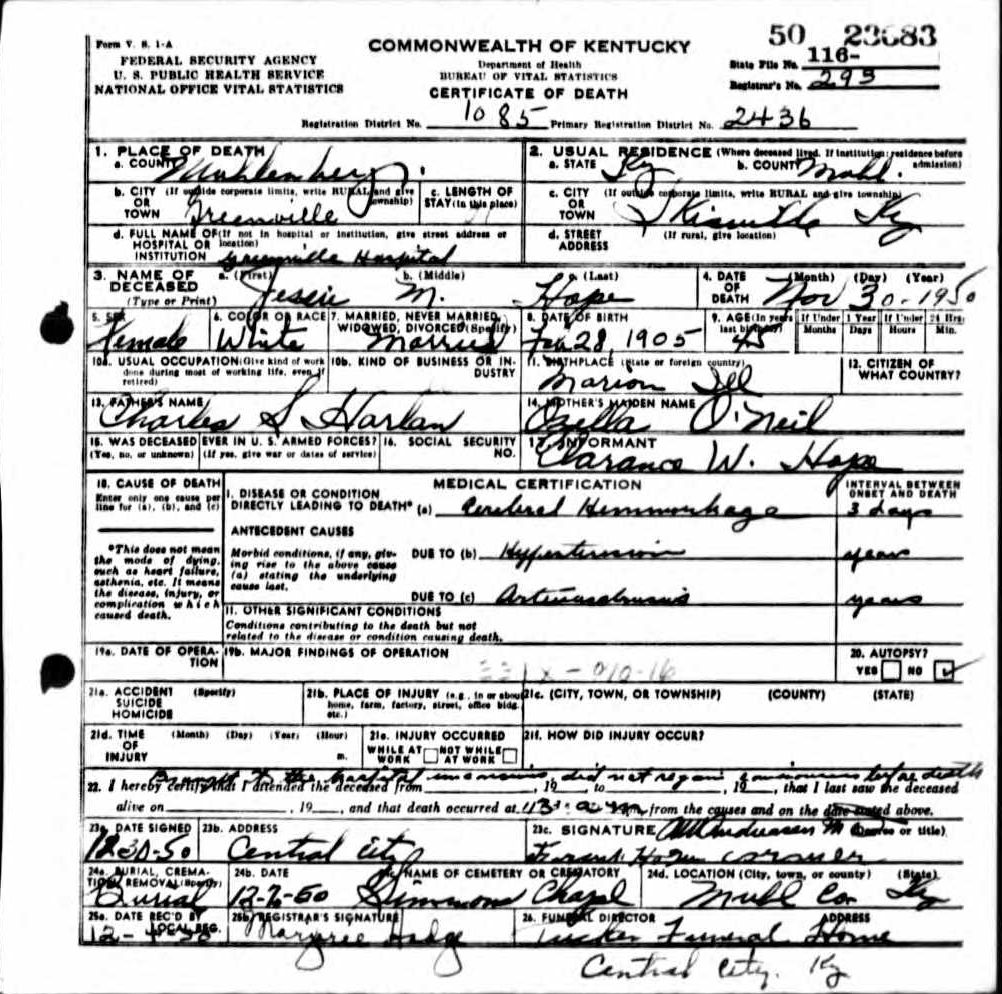 50 23683
Form V. S. 1-A
COMMONWEALTH OF KENTUCKY
FEDERAL SECURITY AGENCY
U. S. PUBLIC HEALTH SERVICE
NATIONAL OFFICE VITAL STATISTICS
Department of Health
BUREAU OF VITAL STATISTICS
CERTIFICATE OF DEATH
State File No. 116-
Registrar's No. 293
Registration District No. 1085 Primary Registration District No. 2436
1. PLACE OF DEATH
a. COUNTY Muhlenberg.
2. USUAL RESIDENCE (Where deceased lived. If institution: residence before admission)
a. STATE Ky b. COUNTY Muhl.
b. CITY (If outside corporate limits, write RURAL and give township)
OR
TOWN Greenville
c. LENGTH OF
STAY (in this place)
c. CITY (If outside corporate limits, write RURAL and give township)
OR
TOWN Ky
d. FULL NAME OF (If not in hospital or institution, give street address or location)
HOSPITAL OR
INSTITUTION Greenville Hospital
d. STREET (If rural, give location)
ADDRESS
3. NAME OF DECEASED
(Type or Print)
a. (First) b. (Middle) c. (Last)
Jessie M. Hope
4. DATE OF DEATH (Month) (Day) (Year)
Nov 30-1950
5. SEX
Female
6. COLOR OR RACE
White
7. MARRIED, NEVER MARRIED, WIDOWED, DIVORCED (Specify)
Married
8. DATE OF BIRTH
Feb 28, 1905
9. AGE (In years last birthday)
45
If Under 1 Year
Months Days
If Under 24 Hrs.
Hours Min.
10a. USUAL OCCUPATION (Give kind of work done during most of working life, even if retired)
10b. KIND OF BUSINESS OR INDUSTRY
11. BIRTHPLACE (State or foreign country)
Marion Ill
12. CITIZEN OF WHAT COUNTRY?
13. FATHER'S NAME
Charles S Harlan
14. MOTHER'S MAIDEN NAME
Ozella O'Neil
15. WAS DECEASED EVER IN U. S. ARMED FORCES?
(Yes, no, or unknown) (If yes, give war or dates of service)
16. SOCIAL SECURITY NO.
17. INFORMANT
Clarance W. Hope
18. CAUSE OF DEATH
Enter only one cause per line for (a), (b), and (c)
MEDICAL CERTIFICATION
INTERVAL BETWEEN ONSET AND DEATH
I. DISEASE OR CONDITION
DIRECTLY LEADING TO DEATH* (a) Cerebral Hemmorhage 3 days
*This does not mean the mode of dying, such as heart failure, asthenia, etc. It means the disease, injury, or complication which caused death.
ANTECEDENT CAUSES
Morbid conditions, if any, giving rise to the above cause (a) stating the underlying cause last.
DUE TO (b) Hypertension years
DUE TO (c) years
II. OTHER SIGNIFICANT CONDITIONS
Conditions contributing to the death but not related to the disease or condition causing death.
19a. DATE OF OPERATION
19b. MAJOR FINDINGS OF OPERATION
20. AUTOPSY?
YES NO
21a. ACCIDENT (Specify)
SUICIDE
HOMICIDE
21b. PLACE OF INJURY (e.g., in or about home, farm, factory, street, office bldg. etc.)
21c. (CITY, TOWN, OR TOWNSHIP) (COUNTY) (STATE)
21d. TIME OF INJURY (Month) (Day) (Year) (Hour)
m.
21e. INJURY OCCURRED
WHILE AT WORK NOT WHILE AT WORK
21f. HOW DID INJURY OCCUR?
Brought to the hospital did not regain before death
22. I hereby certify that I attended the deceased from , 19 to , 19 , that I last saw the deceased
alive on , 19 , and that death occurred at m., from the causes and on the date stated above.
23a. DATE SIGNED
23b. ADDRESS
Central City
23c. SIGNATURE (Degree or title)
24a. BURIAL, CREMATION, REMOVAL (Specify)
Burial
24b. DATE
24c. NAME OF CEMETERY OR CREMATORY
Simmons Chapel
24d. LOCATION (City, town, or county) (State)
Muhl Co. Ky
25a. DATE REC'D BY LOCAL REG.
25b. REGISTRAR'S SIGNATURE
26. FUNERAL DIRECTOR ADDRESS
Tucker Funeral Home
Central City. Ky